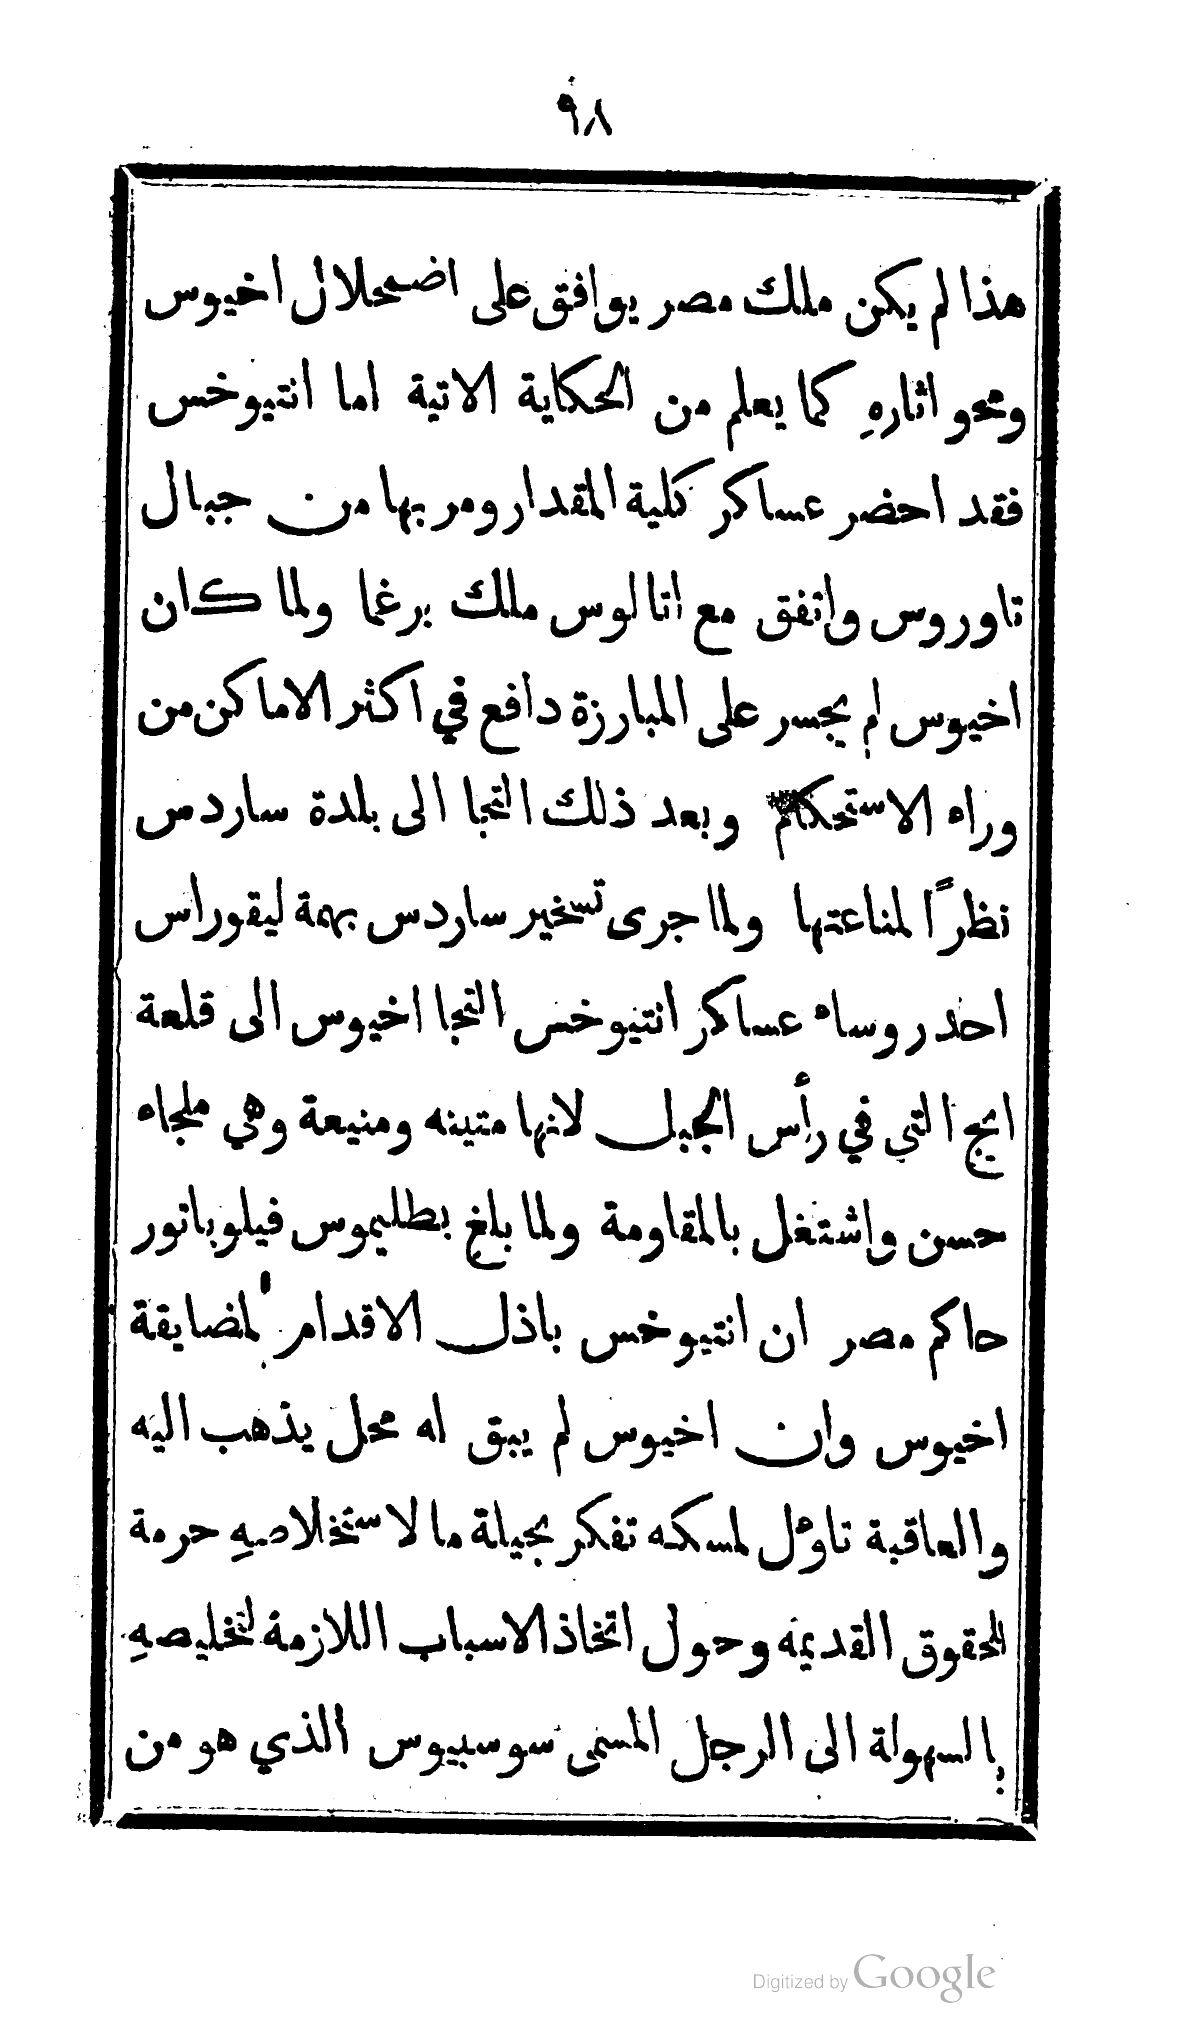 ٩٨
هذا لم يكن ملك مصر يوافق على اضمحلال اخيوس
ومحو اثارهِ كما يعلم من الحكاية الاتية اما انتيوخس
فقد احضر عساكر كلية المقدار ومر بها من جبال
تاوروس واتفق مع اتالوس ملك برغما ولما كان
اخيوس لم يجسر على المبارزة دافع في اكثر الاماكن من
وراء الاستحكام وبعد ذلك التجا الى بلدة ساردس
نظرًا لمناعتها ولما جرى تسخير ساردس بهمة ليقوراس
احد روساء عساكر انتيوخس التجا اخيوس الى قلعة
ايج التي في رأس الجبل لانها متينه ومنيعة وهي ملجاء
حسن واشتغل بالمقاومة ولما بلغ بطليموس فيلوباتور
حاكم مصر ان انتيوخس باذل الاقدام لمضايقة
اخيوس وان اخيوس لم يبق له محل يذهب اليه
والعاقبة تاوُل لمسكه تفكر بحيلة ما لاستخلاصهِ حرمة
للحقوق القديمه وحول اتخاذ الاسباب اللازمة لتخليصهِ
بالسهولة الى الرجل المسمى سوسبيوس الذي هو من
Digitized by Google